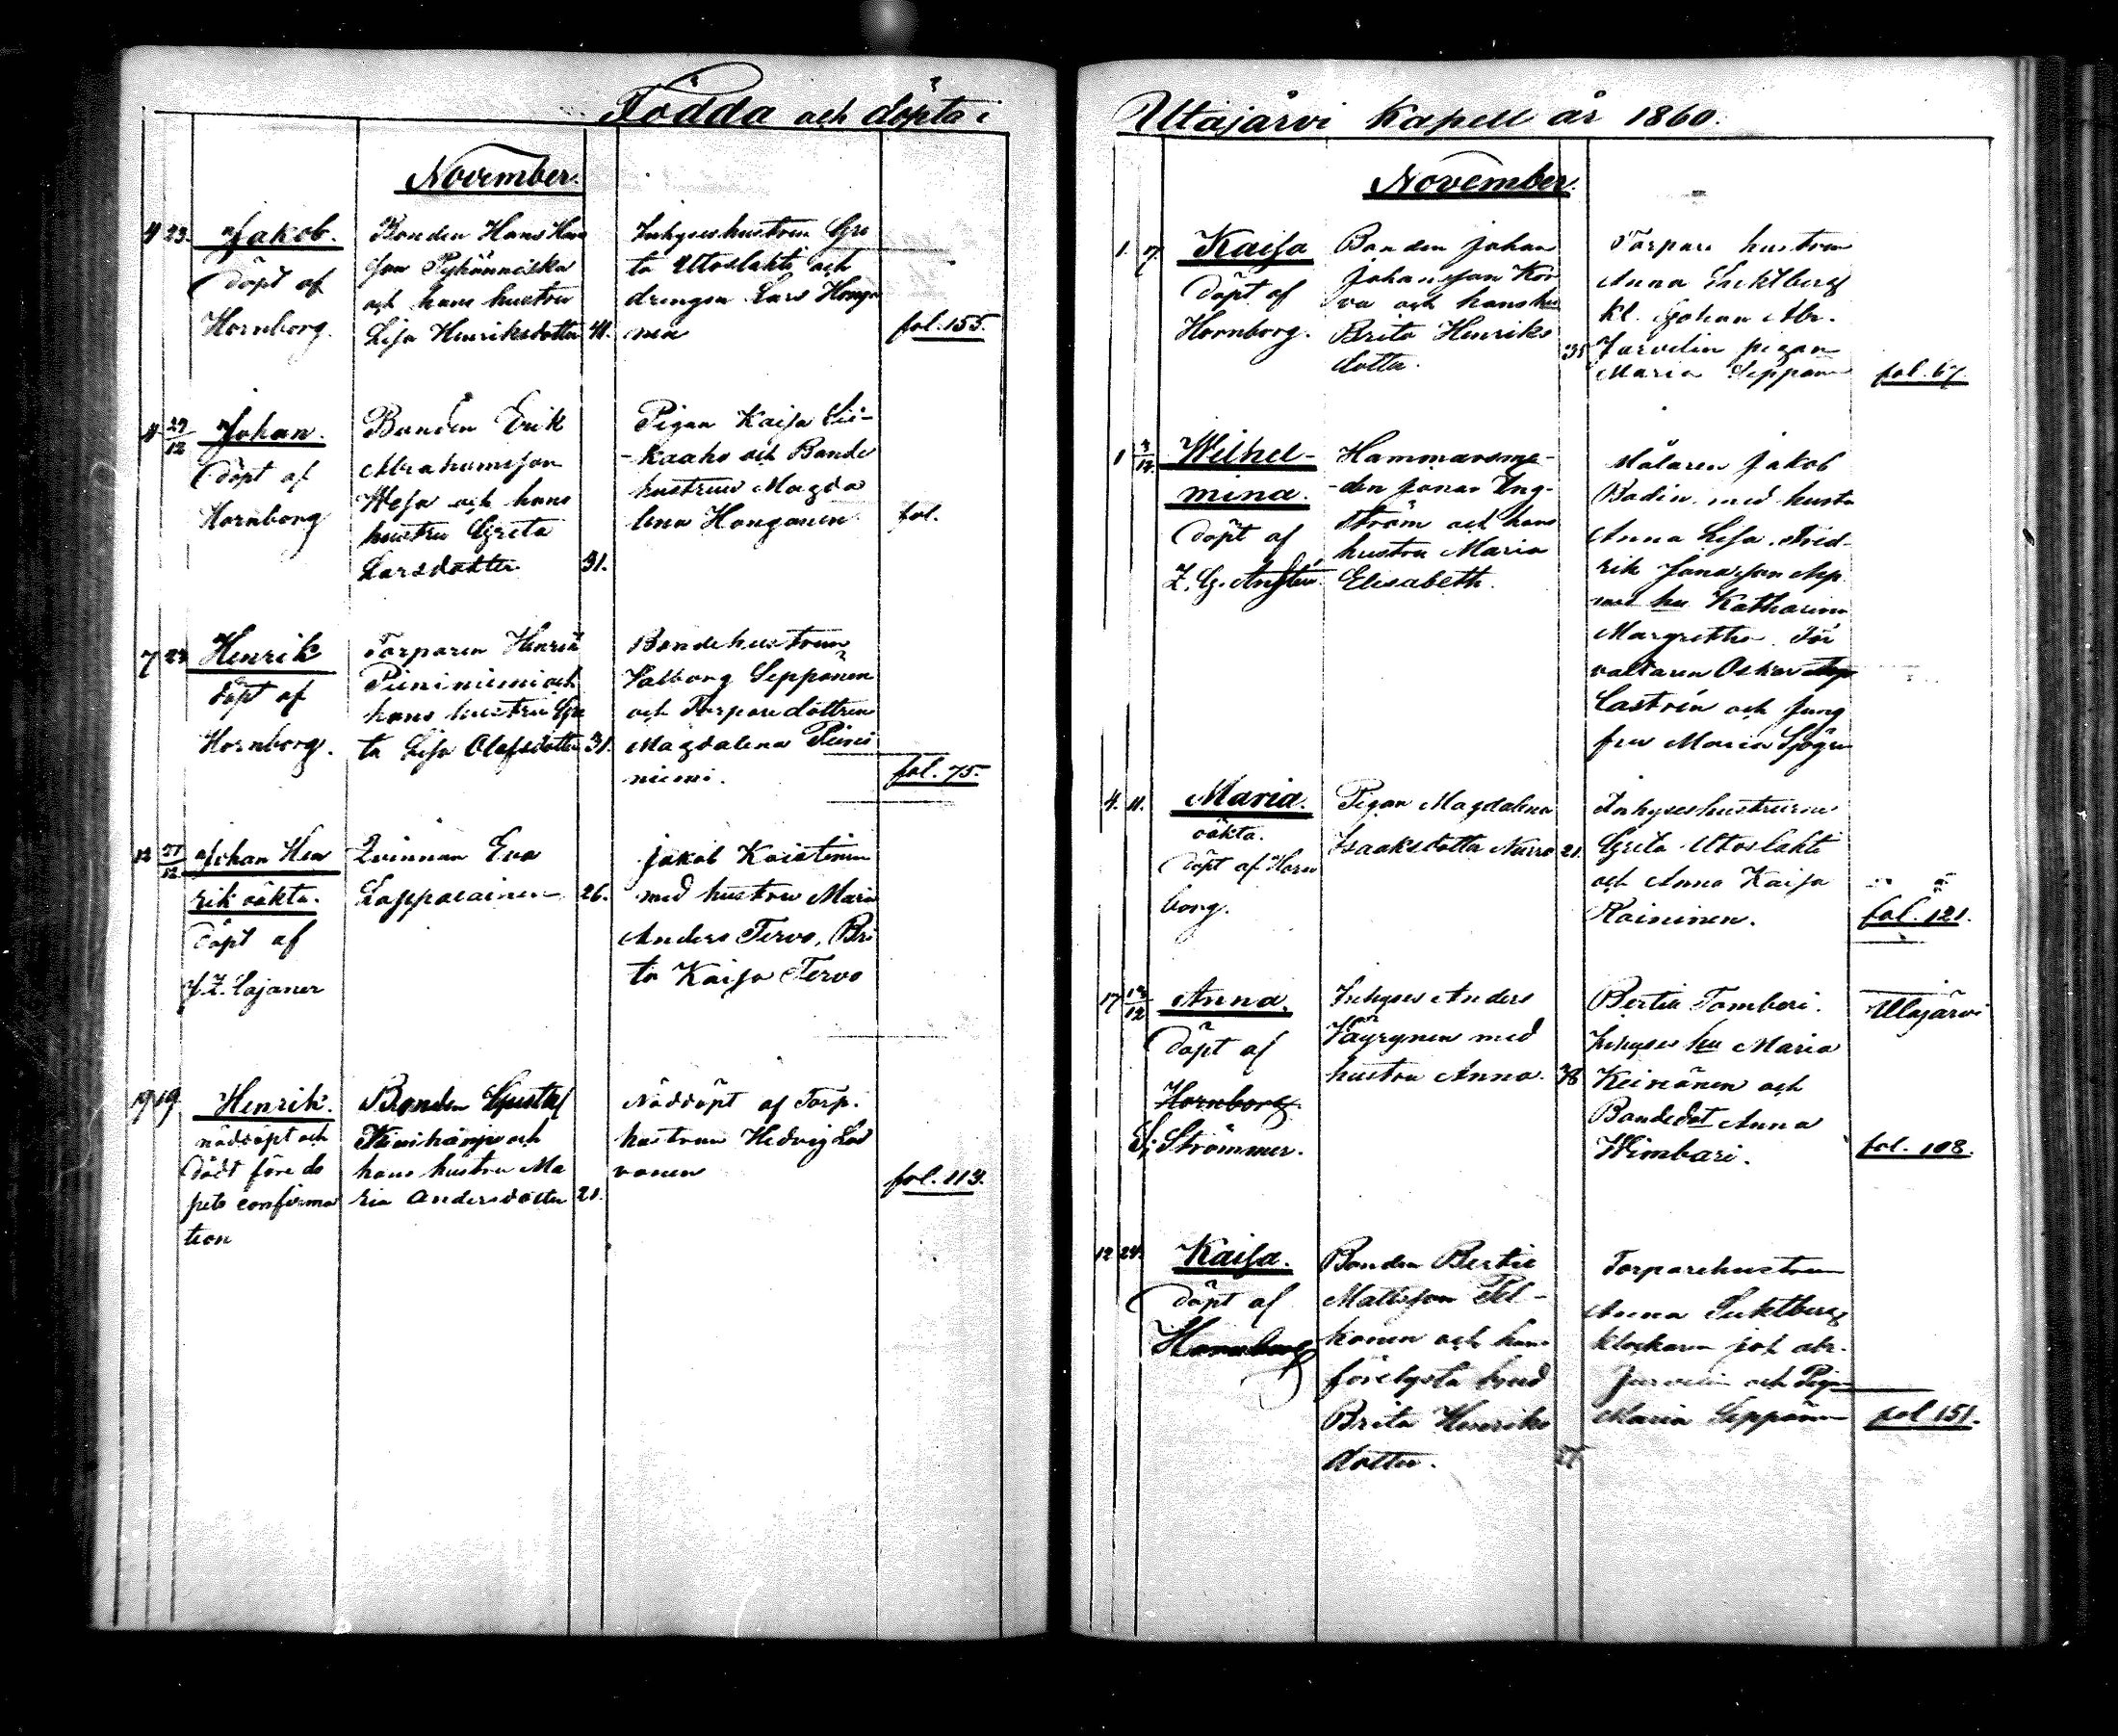 Födda och döpta i
November.
4 23. Jakob.
Döpt af
Hornborg.
Bonden Hans Hans
son Pyhänniska
och hans hustru
Lisa Henriksdotter 41.
Inhyseshustrun Gre
ta Utoslahti och
drengen Lars Honga
nen
fol. 155.
4 29/12 Johan.
Döpt af
Hornborg
Bonden Erik
Abrahamsson
Wesa och hans
hustru Greta
Larsdotter 31.
Pigan Kaisa Sii-
kaaho och Bonde
hustrun Magda
lena Honganen
fol.
7 Henrik
döpt af
Hornborg.
Torparen Henrik
Pieniniemi och
hans hustru Gre
ta Lisa Olofsdotter 31.
Bondehustrun
Valborg Seppänen
och Torparedottren
Magdalena Pieni
niemi.
fol. 75.
12 Johan Hen
rik oäkta.
Döpt af
J. F. Cajaner
Qvinnan Eva
Lappalainen 26.
Jakob Kaistinen
med hustru Maria
Anders Tervo, Bri
ta Kaisa Tervo
19 19. Henrik.
nöddöpt och
död före do
pets confirma
tion
Bonden Gustaf
Kiviharju och
hans hustru Ma
ria Andersdotter 21.
Nöddöpt af Torp.
hustrun Hedvig Lov
vonen
fol. 113.
Utajärvi Kapell år 1860.
November.
1. 7. Kaisa
Döpt af
Hornborg.
Bonden Johan
Johansson Kor
va och hans hu
Brita Henriks
dotter. 35
Torpare hustrun
Anna Suktberg
kl. Johan Abr.
Jurvelin pigan
Maria Seppänen
fol. 67.
1 Wilhel-
mina.
Döpt af
Hammarsme-
den Jonas Eng-
ström och hans
hustru Maria
Elisabeth.
Målaren Jakob
Bodin med hustru
Anna Lisa. Fred-
rik Jonasson
med hu Katharina
Margretha. För
valtaren Oskar
Castrén och Jung
fru Maria Sjögren
4. 11. Maria.
oäkta.
Döpt af Horn
borg.
Pigan Magdalena
Isaksdotter Nurro 21.
Inhyseshustrurna
Greta Utoslahti
och Anna Kaisa
Kaininen.
fol. 121.
17 12/12 Anna.
Döpt af
Hornborg
Strömmer.
Inhyses Anders
Väyrynen med
hustru Anna. 38
Bertil Tomberi.
Inhyses hu Maria
Keinänen och
Bondedot Anna
Wimbari.
Utajärvi
fol. 108.
12 24. Kaisa.
Döpt af
Hornborg
Bonden Bertil
Mattsson Til-
konen och hans
förelysta brud
Brita Henriks
dotter.
Torparehustrun
Anna Suktberg
klockaren joh abr.
Jurvelin och Pigan
Maria Seppänen
fol 151.